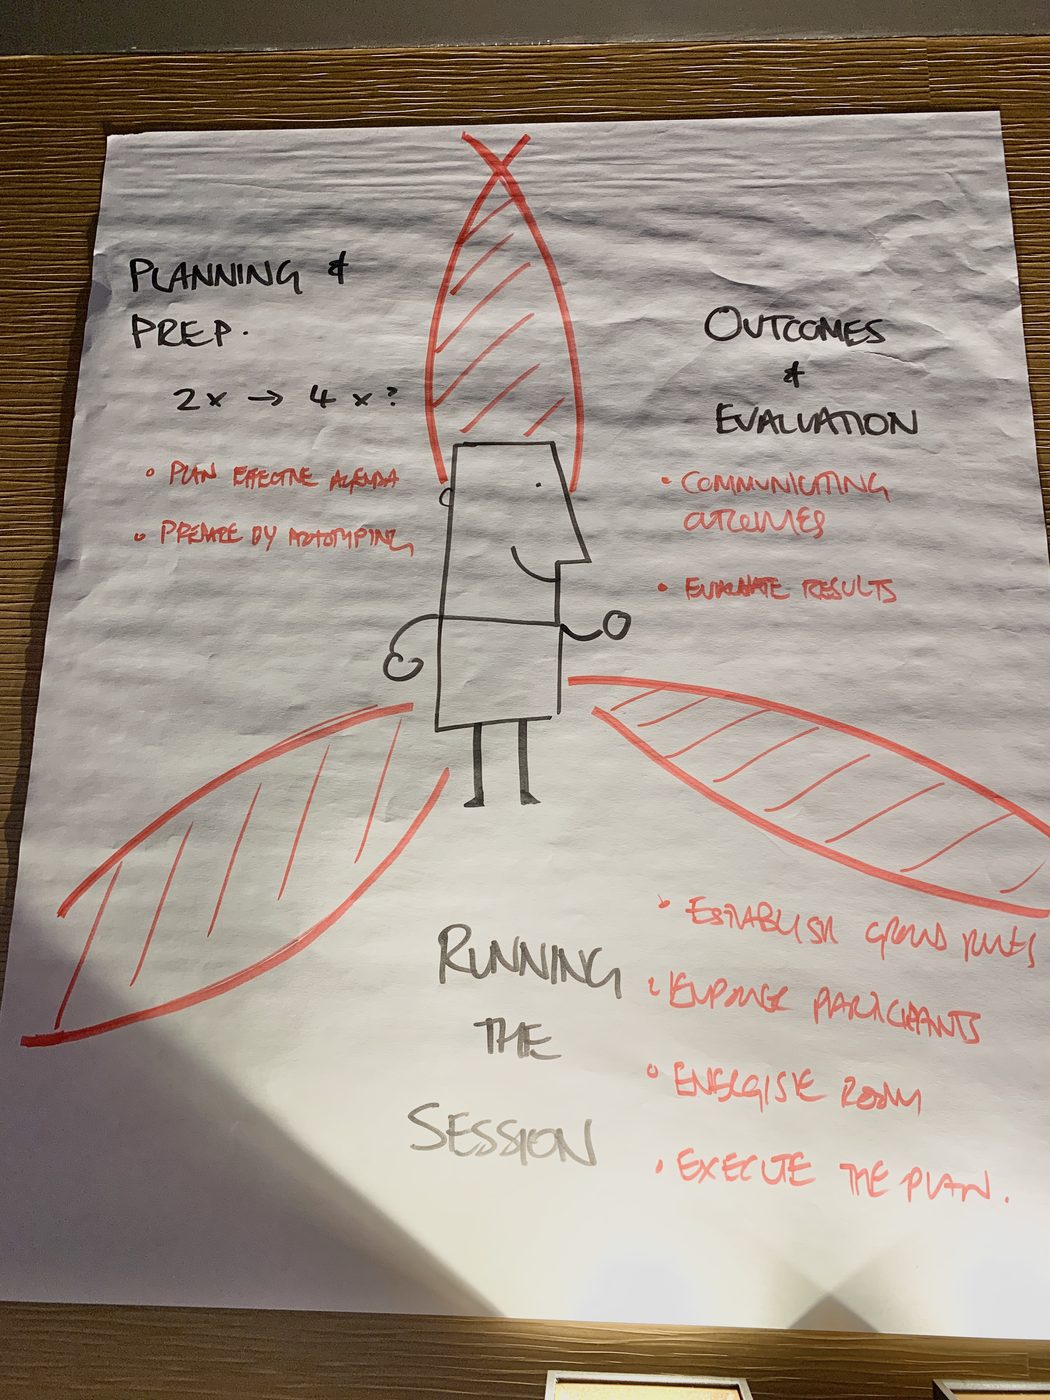 PLANNING &
PREP.
2x → 4x?
• PLAN EFFECTIVE AGENDA
• PREPARE BY PROTOTYPING
OUTCOMES
&
EVALUATION
• COMMUNICATING
OUTCOMES
• EVALUATE RESULTS
RUNNING
THE
SESSION
• ESTABLISH GROUND RULES
• PARTICIPANTS
• ENERGISE ROOM
• EXECUTE THE PLAN.